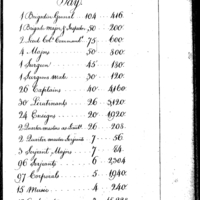 Pay
1 Brigadier General 104 416
1 Brigad. Major & Inspector 50 200
2 Lieut Col. Command. 75 600
4 Majors 50 800
1 Surgeon 45 180
1 Surgeons Mate 30 120
26 Captains 40 4160
30 Lieutenants 26 3120
24 Ensigns 20 1920
2 Quarter master 26 208
2 Quarter master Serjeants 7 56
3 Serjeant Majors 7 84
96 Serjeants 6 2304
97 Corporals 5 1940
15 Music 4 240